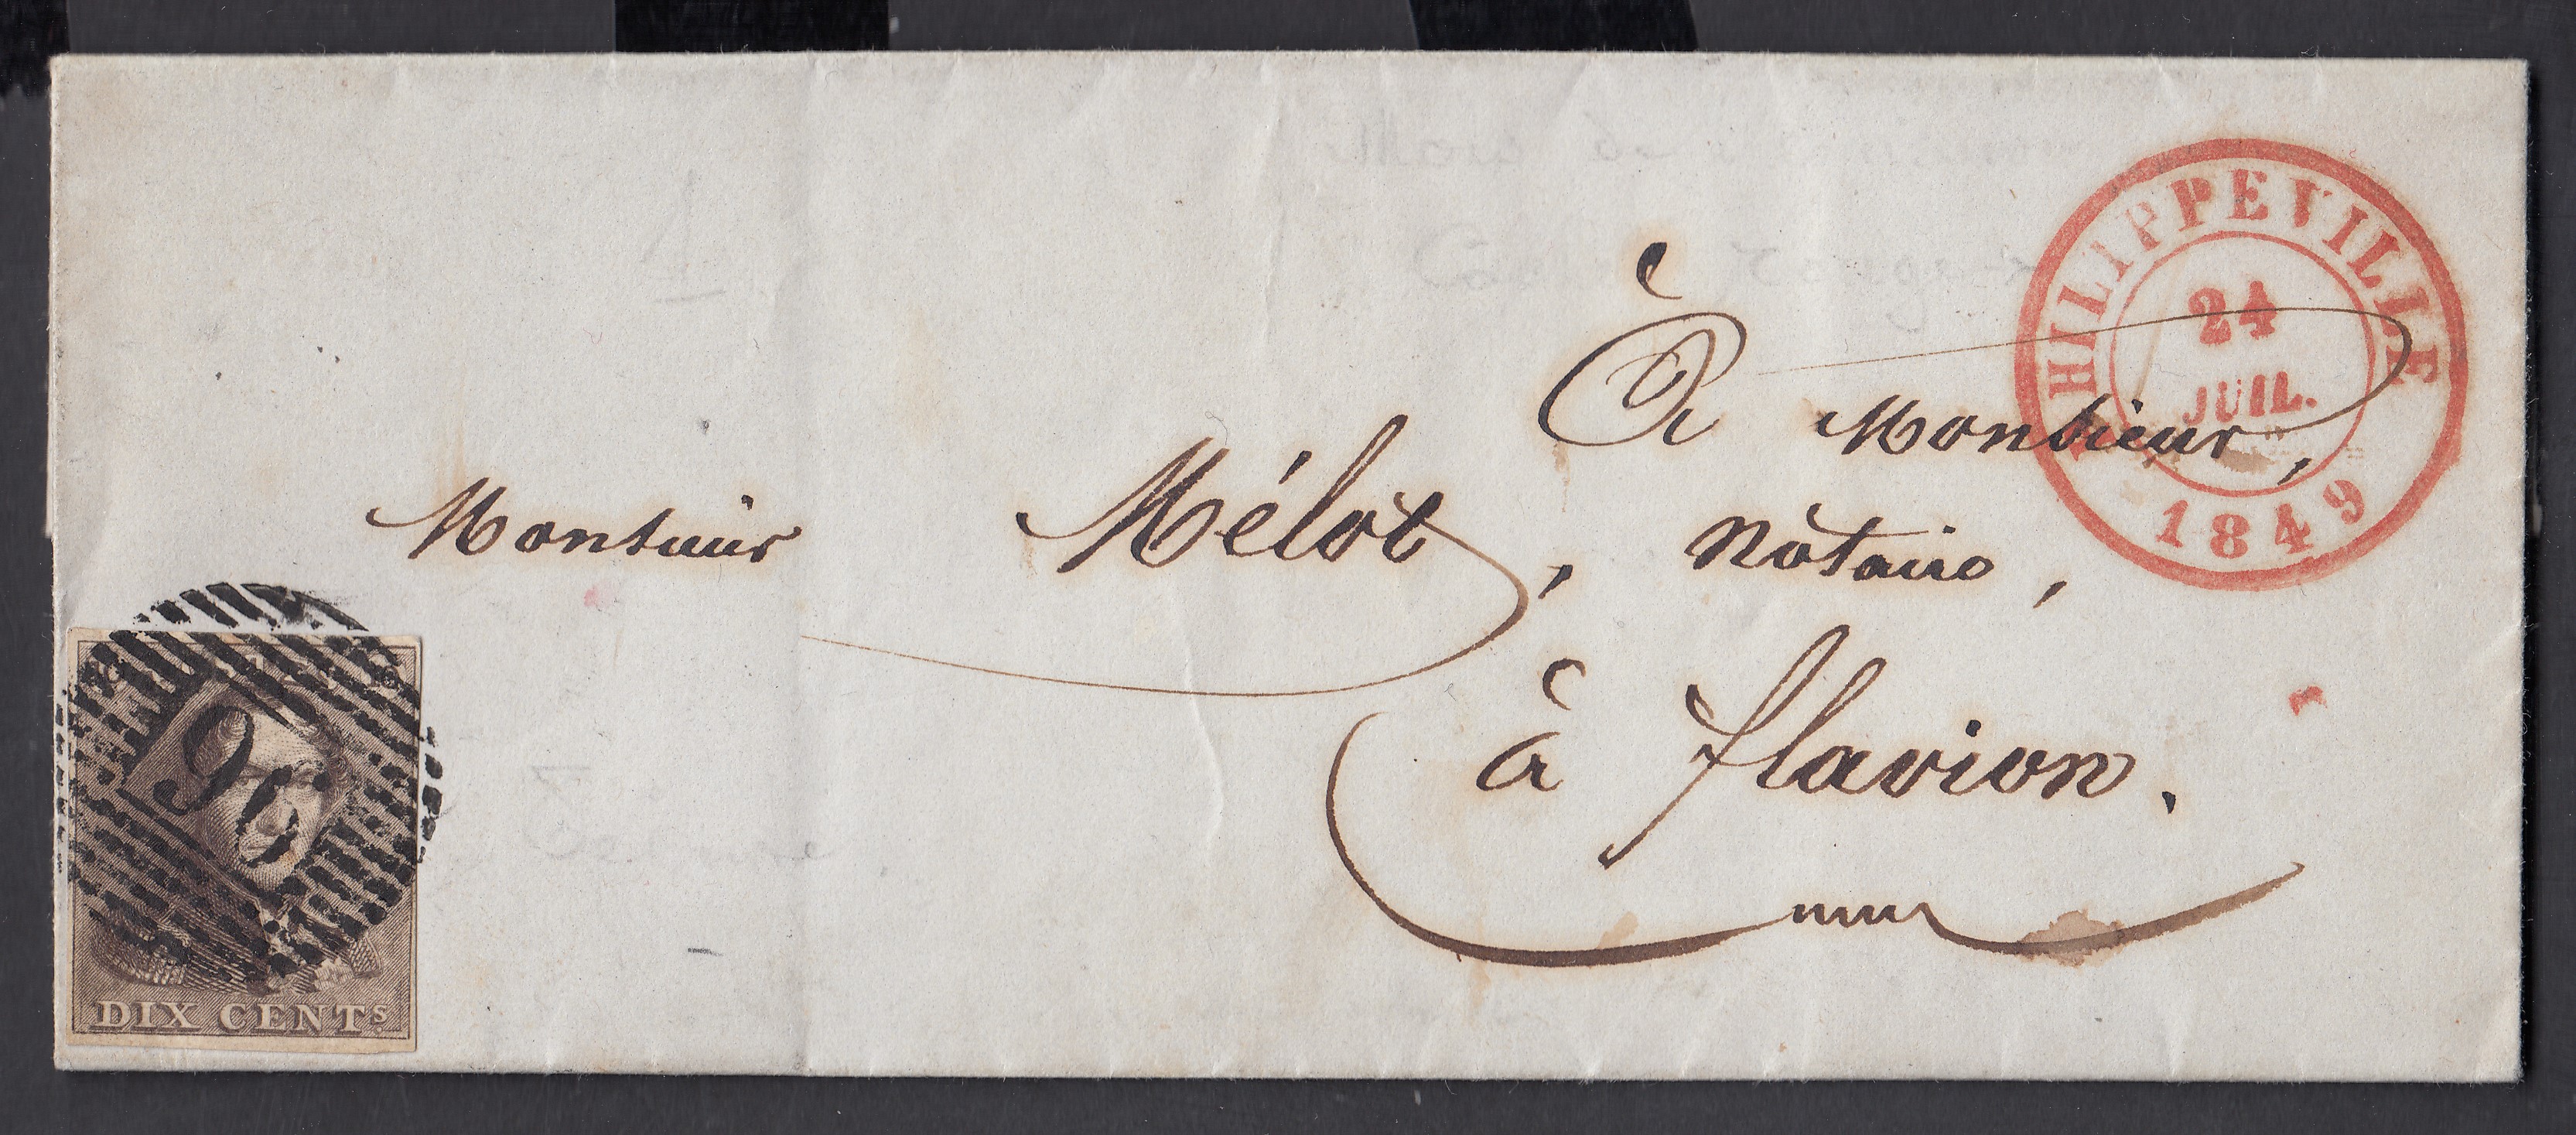 PHILIPPEVILLE
24
JUIL.
1849
À Monsieur,
Monsieur Mélot, Notaire,
à flavion.
96
DIX CENTS